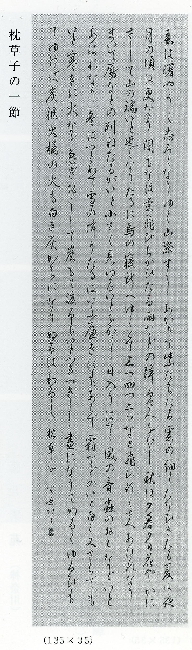 春は曙やうやう志ろくなりゆく山際すこしあかりて紫だちたる雲の細くたなびきたる夏は夜
月の頃は更なり闇もなほ螢飛びちがひたる雨などの降るさへをかし秋は夕暮夕日花やかに
さして山の端いと近くなりたるに烏の寝所へゆくとて三つ四つ二つなど飛びゆくさへあはれなり
まして雁などの列ねたるがいと小さく見ゆるいとをかし日入りはてて風の音蟲の音などいと
あはれなり冬はつとめて雪の降りたるはいふべきにもあらず霜などのいと白く又さらでも
いと寒きに火など急ぎおこして炭もて渡るもいとつきづきし晝になりてぬるくゆるびも
てゆけば炭櫃火桶の火も白き灰がちになりぬるはわろし 枕草子
枕草子の一節
(135×35)